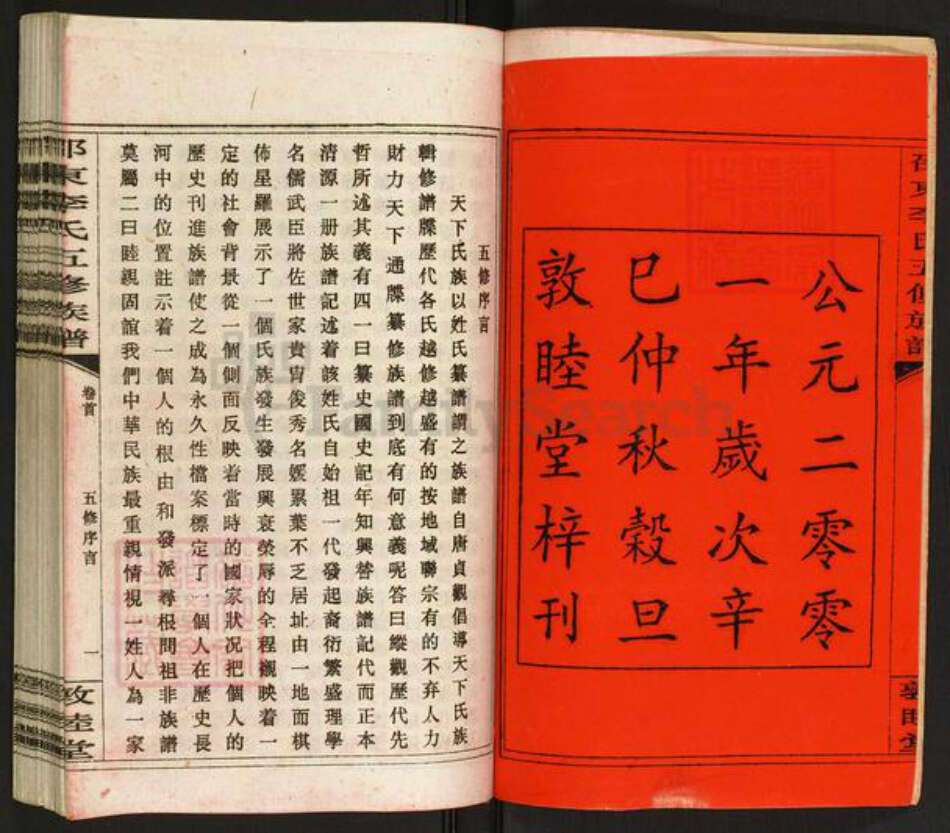 公元二零零
一年歲次辛
巳仲秋穀旦
敦睦堂梓刊
五修序言
天下氏族以姓氏纂譜謂之族譜自唐貞觀倡導天下氏族
輯修譜牒歷代各氏越修越盛有的按地域聯宗有的不弃人力
財力天下通牒纂修族譜到底有何意義呢答曰縱觀歷代先
哲所述其義有四一曰纂史國史記年知興替族譜記代而正本
清源一册族譜記述着該姓氏自始祖一代發起裔衍繁盛理學
名儒武臣將佐世家貴胄俊秀名媛累葉不乏居址由一地而棋
佈星羅展示了一個氏族發生發展興衰榮辱的全程襯映着一
定的社會背景從一個側面反映着當時的國家狀況把個人的
歷史刊進族譜使之成為永久性檔案標定了一個人在歷史長
河中的位置註示着一個人的根由和發派尋根問祖非族譜
莫屬二曰睦親固誼我們中華民族最重親情視一姓人為一家
邵東李氏五修族譜
卷首
五修序言
一
敦睦堂
FamilySearch